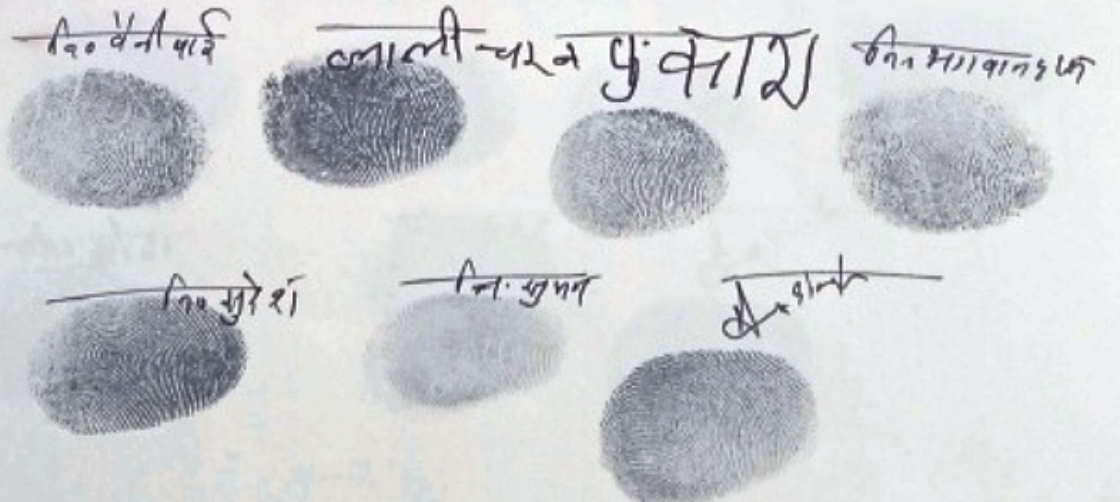 नि० वेनी बाई लाली चरन प्रकाश नि० भगवानदास
नि० सुरेश नि. सुमन